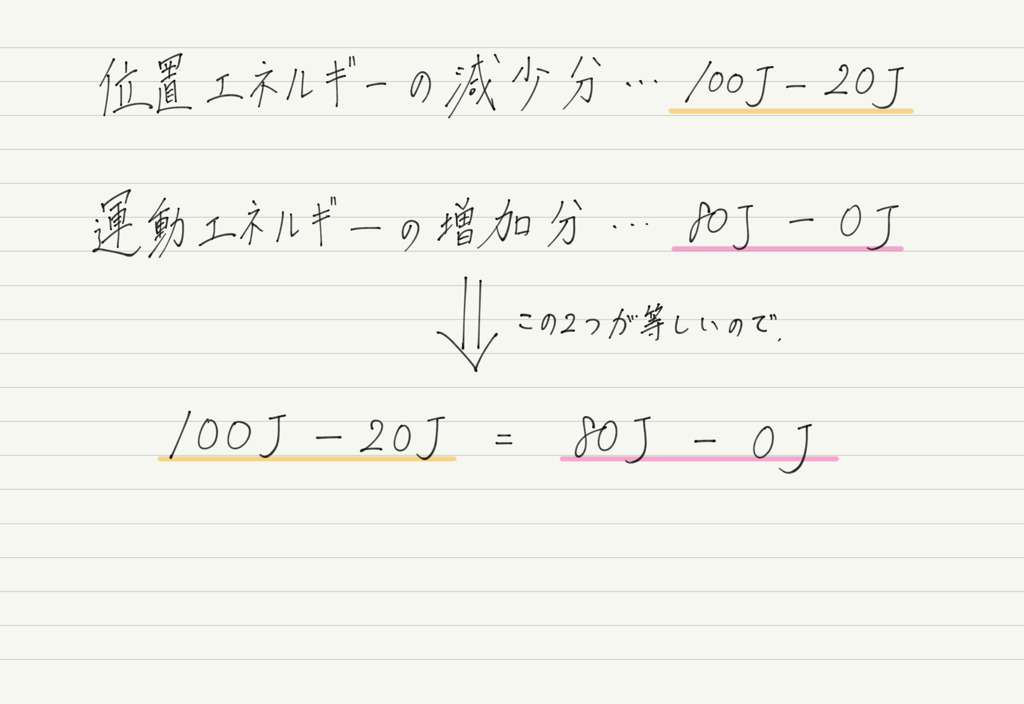 位置エネルギーの減少分… 100J − 20J
運動エネルギーの増加分… 80J − 0J
この2つが等しいので、
100J − 20J = 80J − 0J